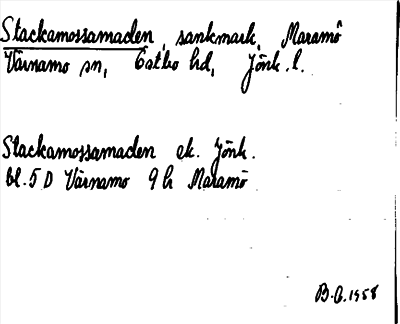 Stackamossamaden, sankmark, Maramö
Värnamo sn, Östbo hd, Jönk. l.
Stackamossamaden ek. Jönk.
bl. 5 D Värnamo 9 h Maramö
B.G. 1958